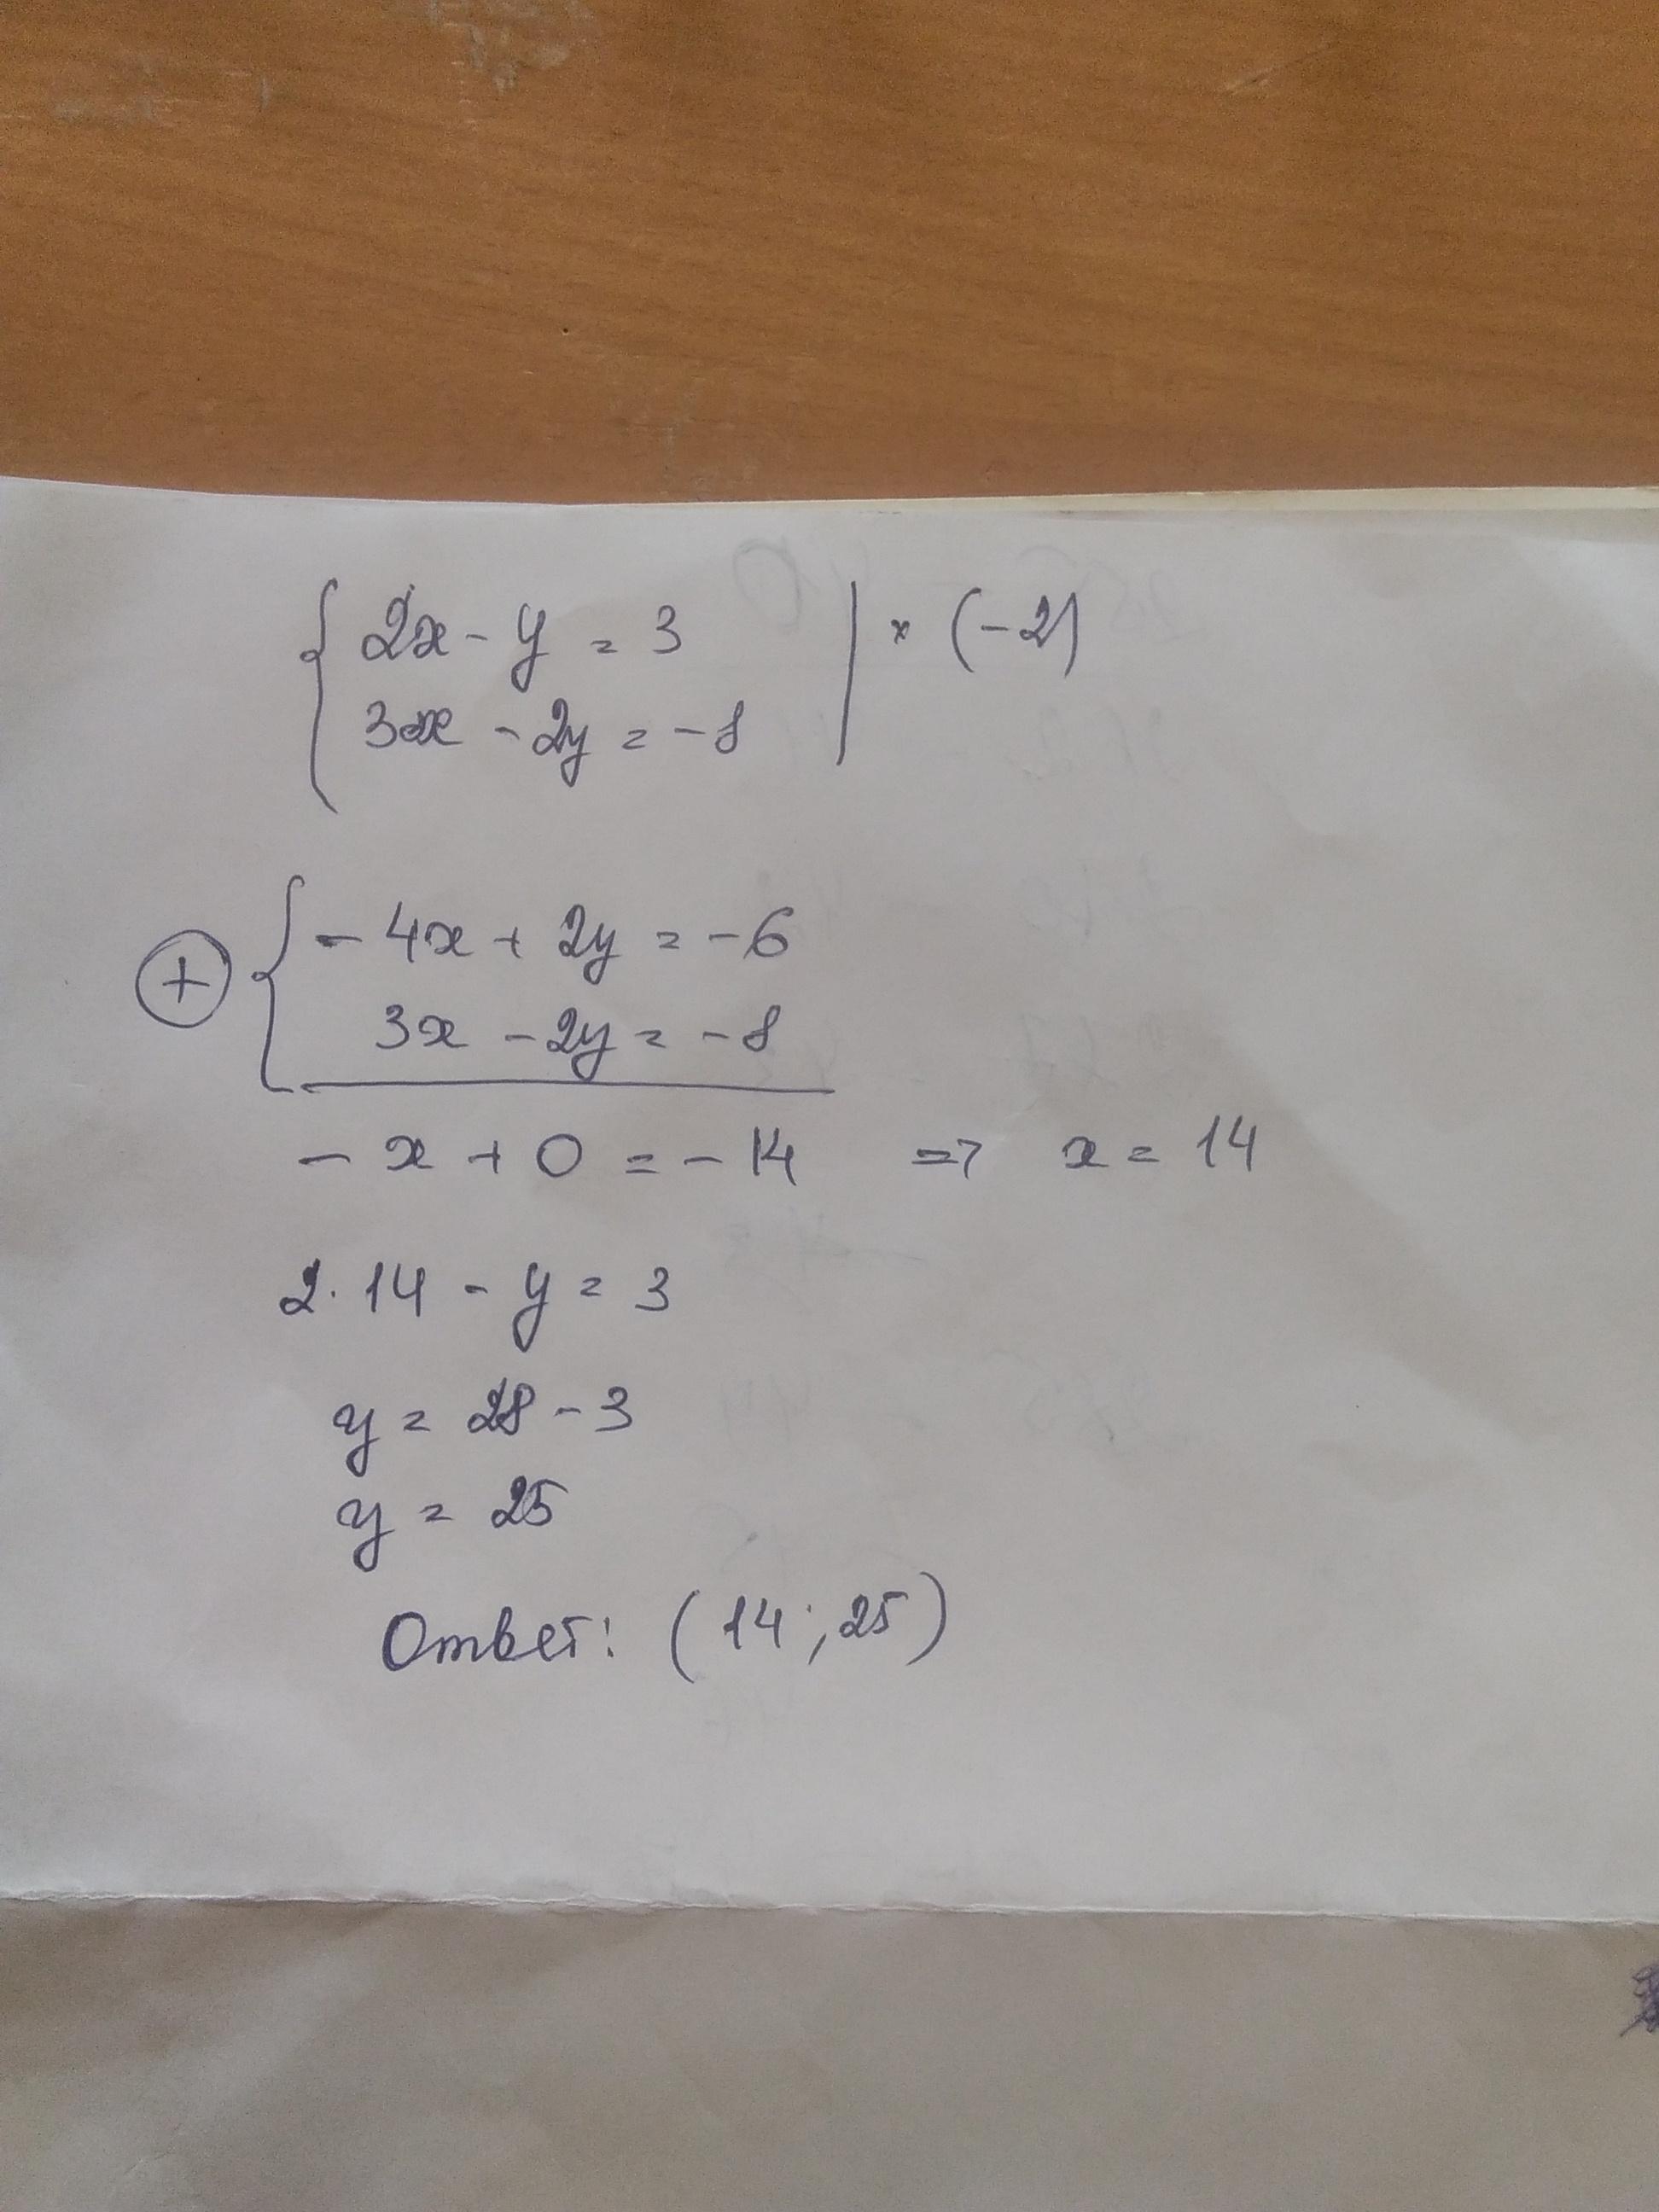 { 2x - y = 3 | × (-2)
3x - 2y = -8
+ { - 4x + 2y = -6
3x - 2y = -8
- x + 0 = - 14 => x = 14
2 · 14 - y = 3
y = 28 - 3
y = 25
Ответ: (14; 25)